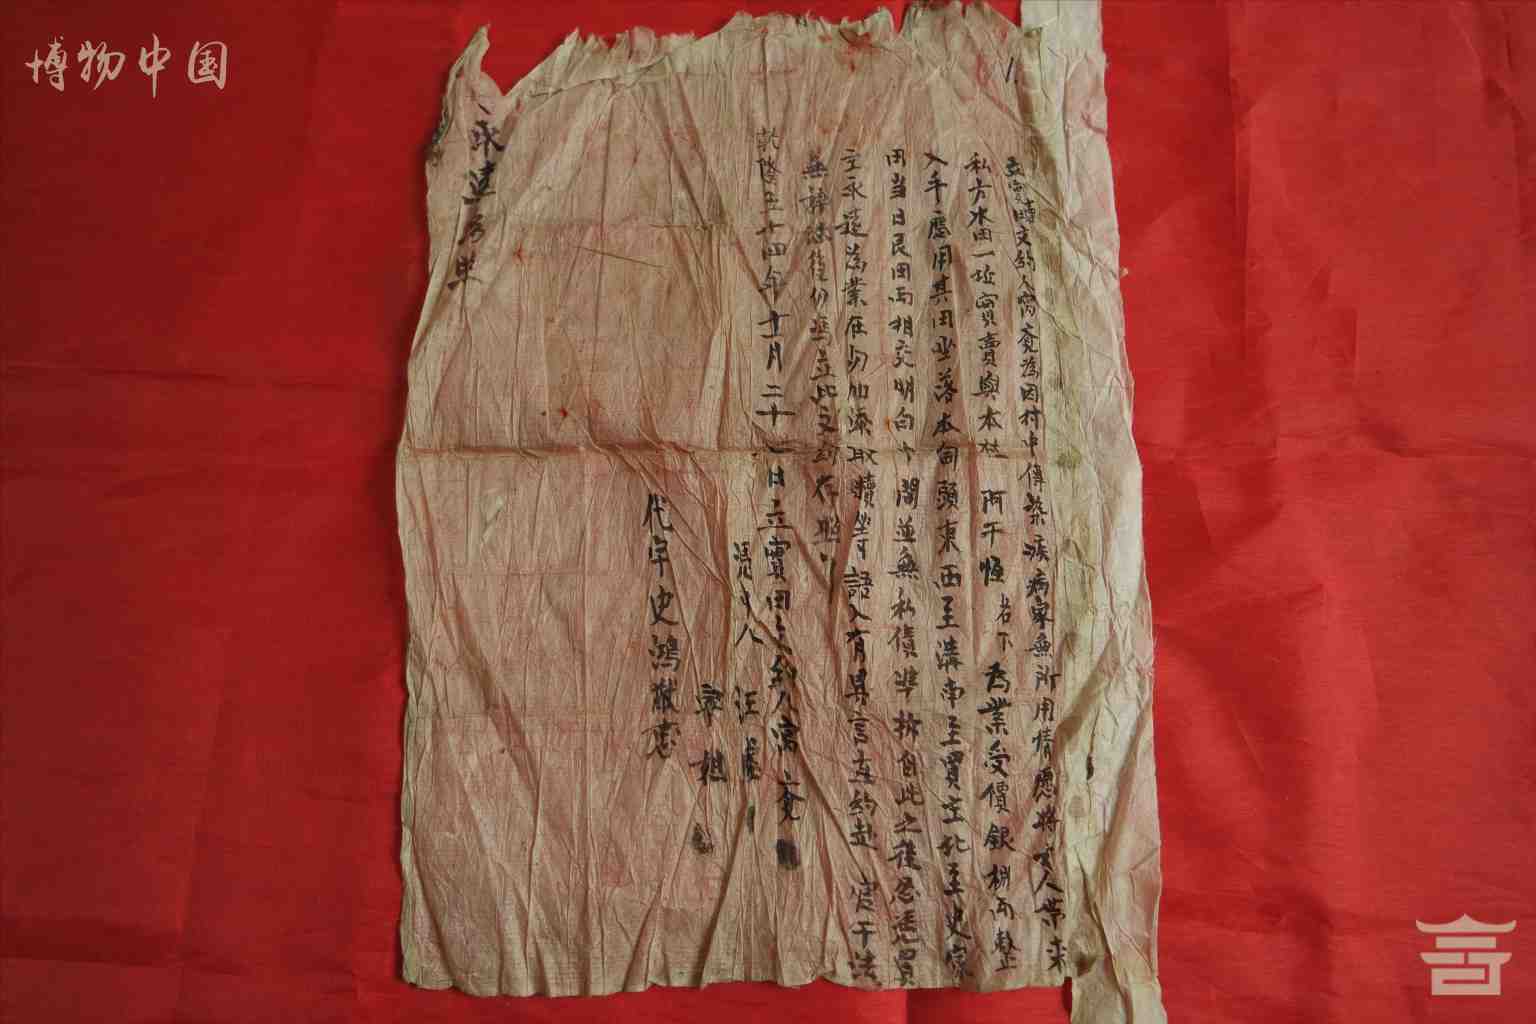 博物中国
立實賣文約人甯兗為因村中傳染疾病家無所用情愿將 人帶來
私方水田一坵實賣與本枝 阿干恆 名下為業受價銀捌両整
入手應用其田坐落本甸頭東西至溝南至買主北至史家
田当日艮田両相交明白中間並無私債準折自此之後忍凭買
主永遠為業在勿加添取贖 語人有異言在約赴 官干法
無辞 後仍 立此文約存照
乾隆五十四年十一月二十 日立實田文約人甯兗
凴中人 汪
寧
代字史鴻猷
永遠為照